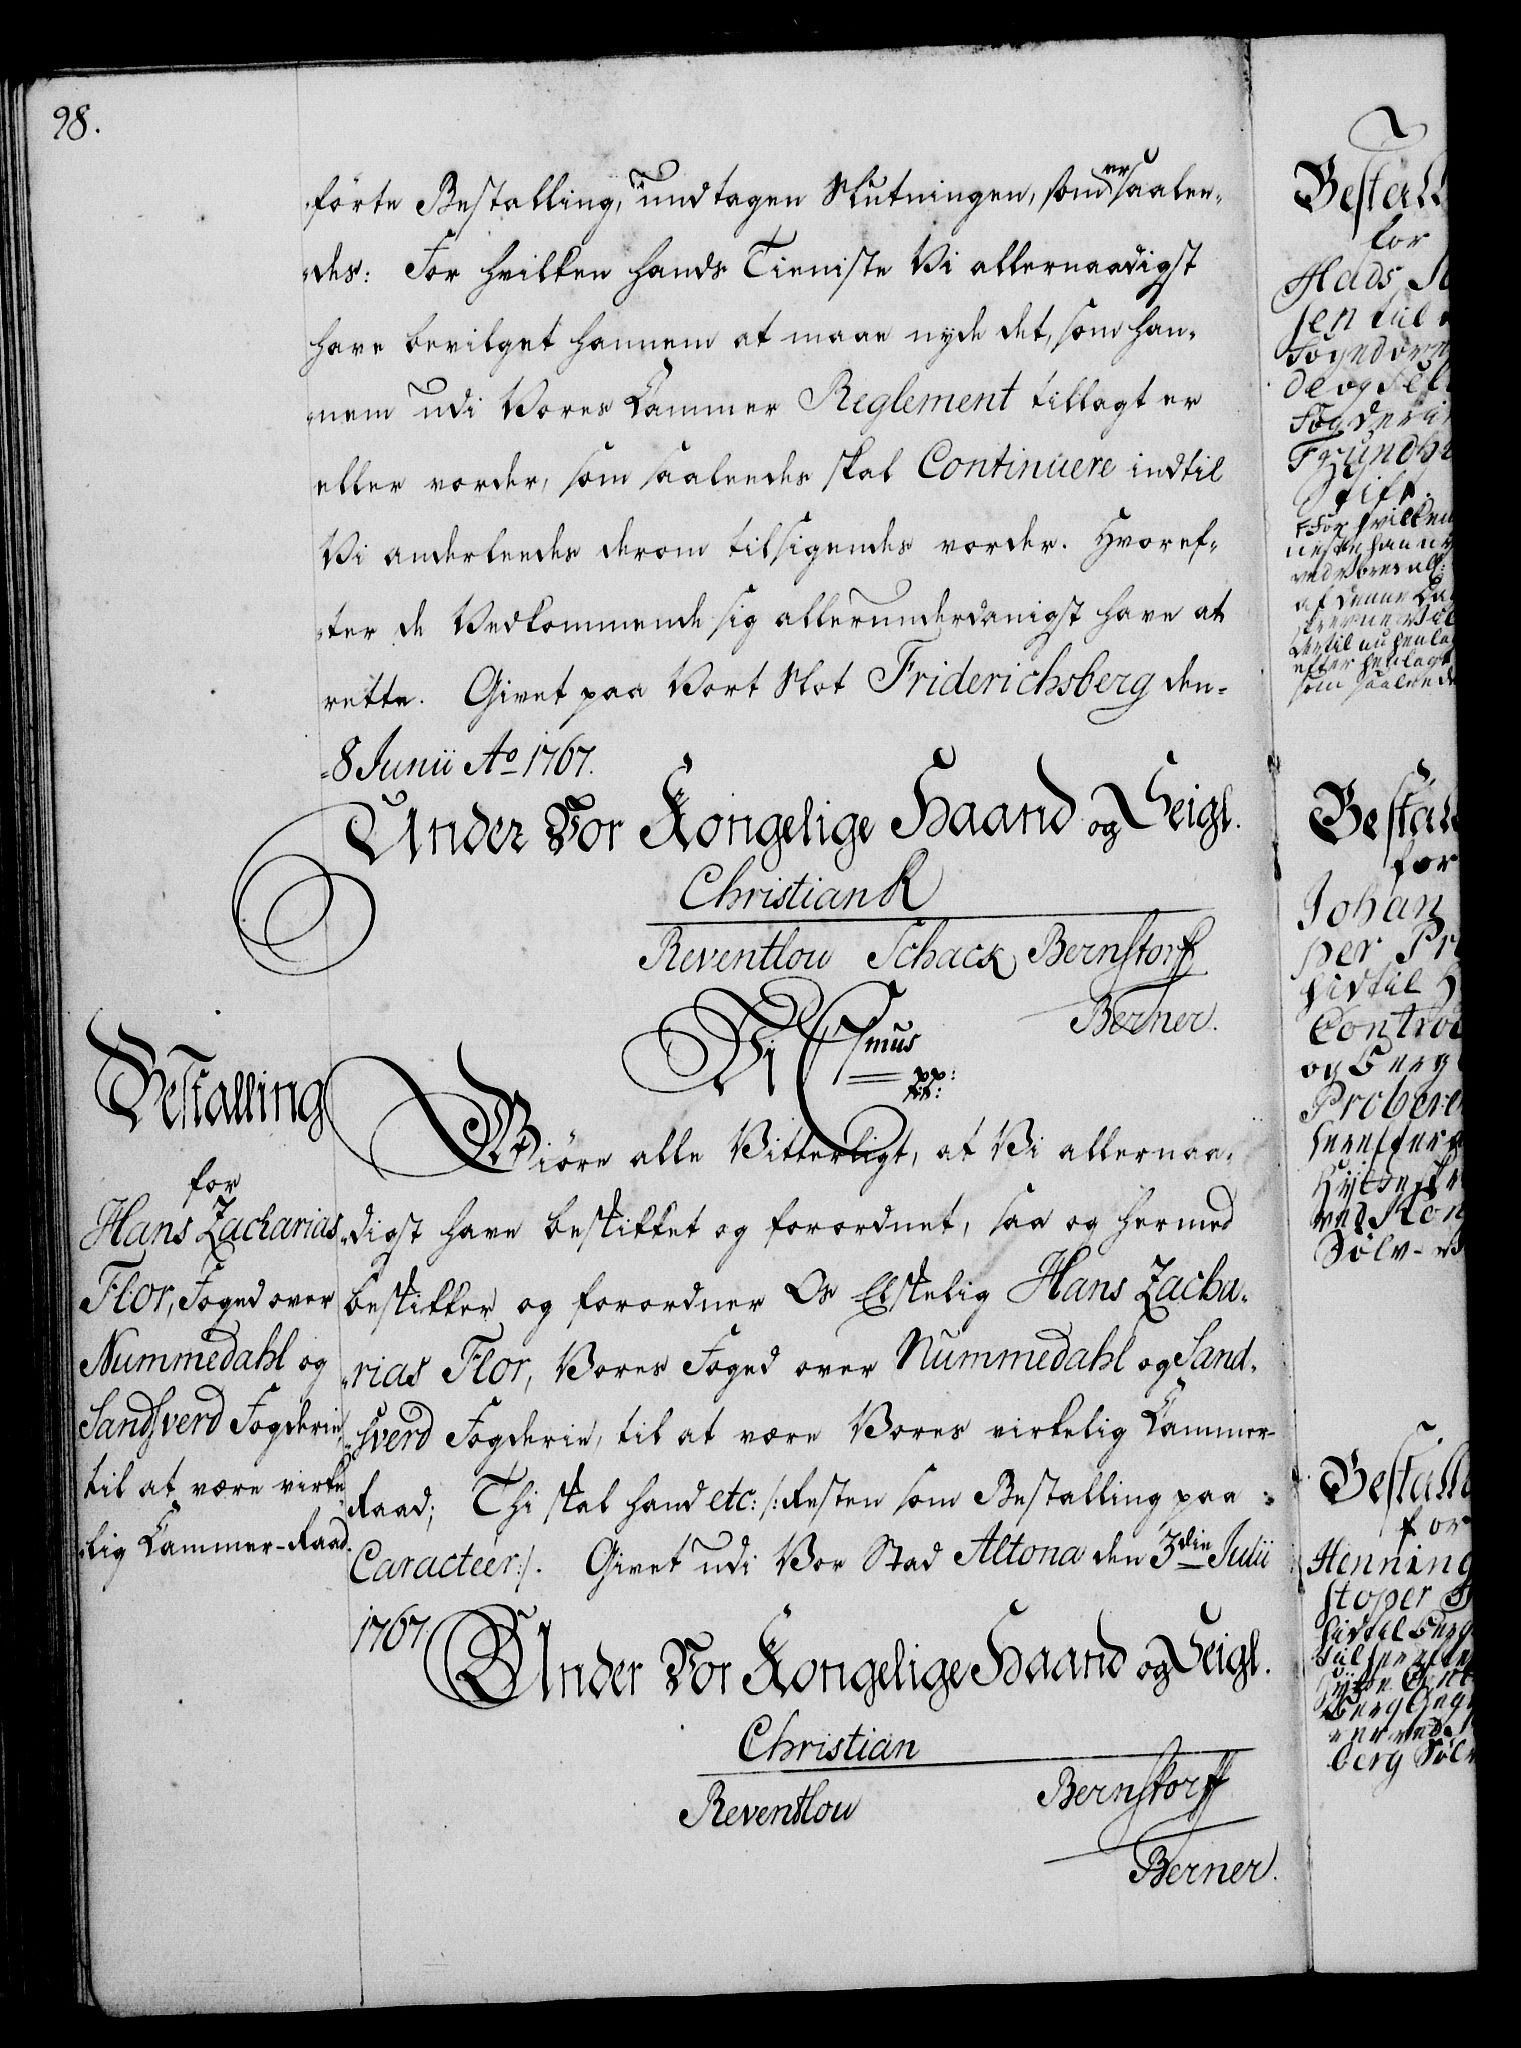 98.
förte Bestalling, undtagen Slutningen, som er saalee-
des: For hvilken hands Tieniste Vi allernaadigst
have bevilget hannem at maae nyde det, som han-
nem udi Vores Cammer Reglement tillagt er
eller vorder, som saaleedes skal Continuere indtil
Vi anderleedes derom tilsigendes vorder. Hvoref-
ter de Vedkommende sig allerunderdanigst have at
rette. Givet paa Vort Slot Friderichsberg den-
8 Junii Ao 1767.
Under Vor Kongelige Haand og Seigl.
Christian R
Reventlou Schack Bernstorff
Berner.
Vi C7mus
pp:
tt:
Bestalling
for
Hans Zacharias
Flor, Foged over
Nummedahl og
Sandsverd Fogderie
til at være virke-
lig Cammer-Raad.
Giöre alle Vitterligt, at Vi allernaa-
digst have beskikket og forordnet, saa og hermed
beskikker og forordner Os Elskelig Hans Zacha-
rias Flor, Vores Foged over Nummedahl og Sand-
sverd Fogderie, til at være Vores virkelig Cammer-
Raad; Thi skal hand etc: /: Resten som Bestalling paa
Caracteer:/. Givet udi Vor Stad Altona den 3die Julii
1767
Under Vor Kongelige Haand og Seigl.
Christian
Reventlou Bernstorff
Berner.
Bestall
for
Hads
sen til
de og
Bestal
for
Johan
per Pr
hidtil H
Control
og Berg
Probere
herefter
Hytte
ved Kong
Sölv-
Bestall
for
Henning
Stoper
hidtil Berg
berg Söl